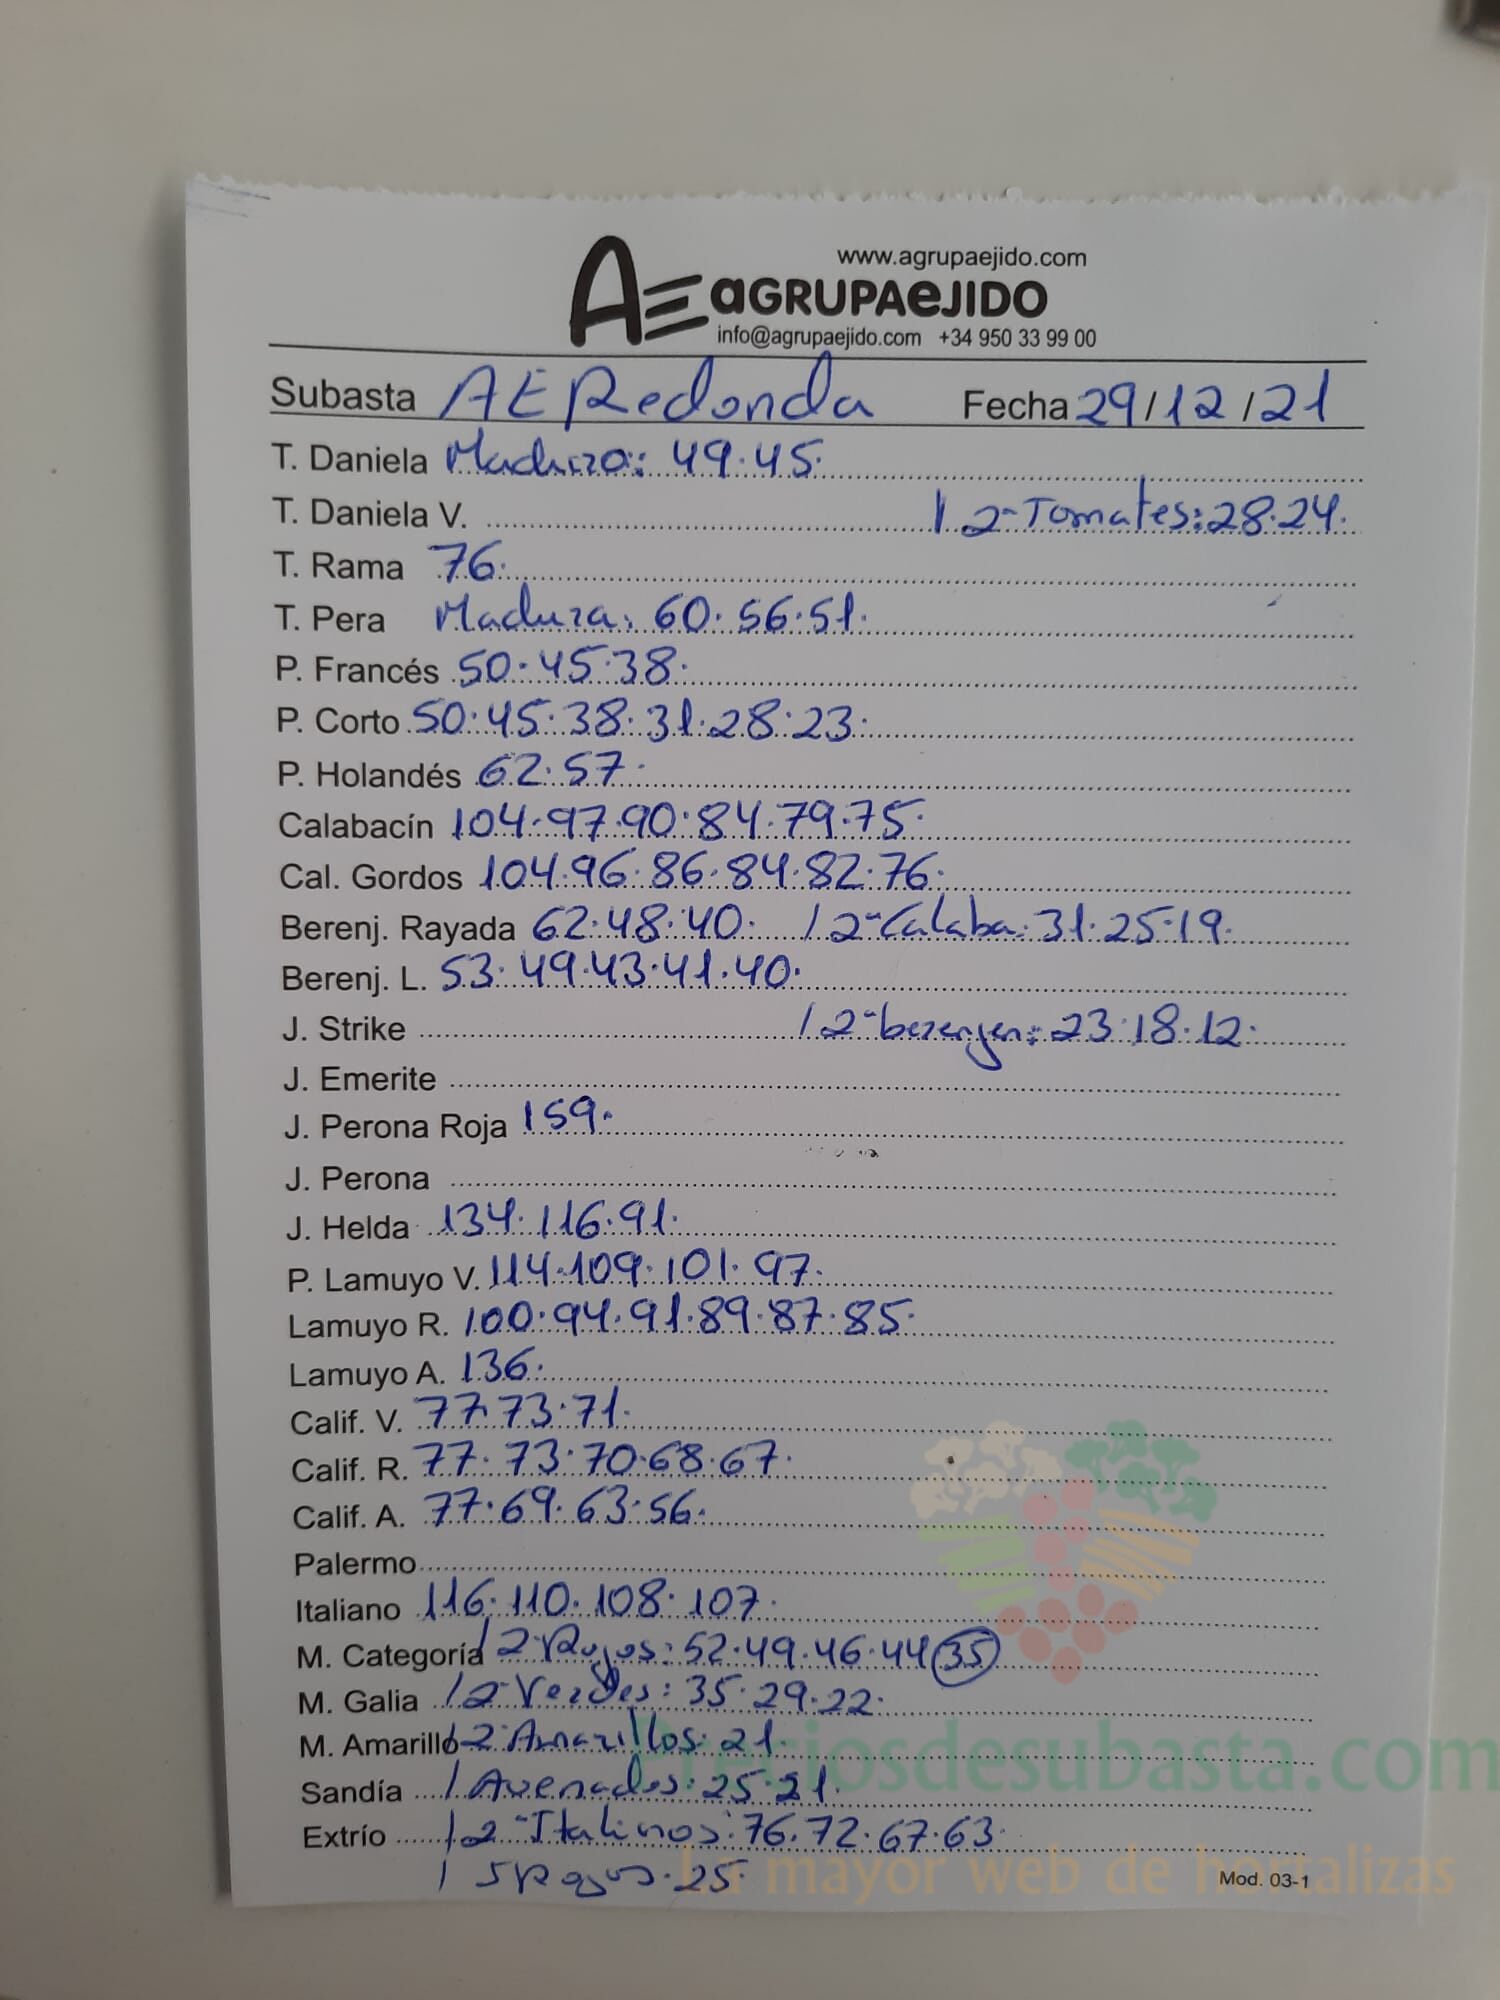 www.agrupaejido.com
AE aGRUPAeJIDO
info@agrupaejido.com +34 950 33 99 00
Subasta AE Redonda Fecha 29/12/21
T. Daniela Maduro: 49.45.
T. Daniela V. / 2ª Tomates: 28.24.
T. Rama 76.
T. Pera Madura: 60.56.51.
P. Francés 50.45.38.
P. Corto 50.45.38.31.28.23.
P. Holandés 62.57.
Calabacín 104.97.90.84.79.75.
Cal. Gordos 104.96.86.84.82.76.
Berenj. Rayada 62.48.40. / 2ª Calaba: 31.25.19.
Berenj. L. 53.49.43.41.40.
J. Strike / 2ª berenjen: 23.18.12.
J. Emerite
J. Perona Roja 159.
J. Perona
J. Helda 134.116.91.
P. Lamuyo V. 114.109.101.97.
Lamuyo R. 100.94.91.89.87.85.
Lamuyo A. 136.
Calif. V. 77.73.71.
Calif. R. 77.73.70.68.67.
Calif. A. 77.69.63.56.
Palermo
Italiano 116.110.108.107.
M. Categoría / 2ª Rojos: 52.49.46.44 (35)
M. Galia / 2ª Verdes: 35.29.22.
M. Amarillo / 2ª Amarillos: 21.
Sandía / Avenados: 25.21.
Extrío / 2ª Italinos: 76.72.67.63.
/ 5 Rojos. 25.
Mod. 03-1
Preciosdesubasta.com
La mayor web de hortalizas